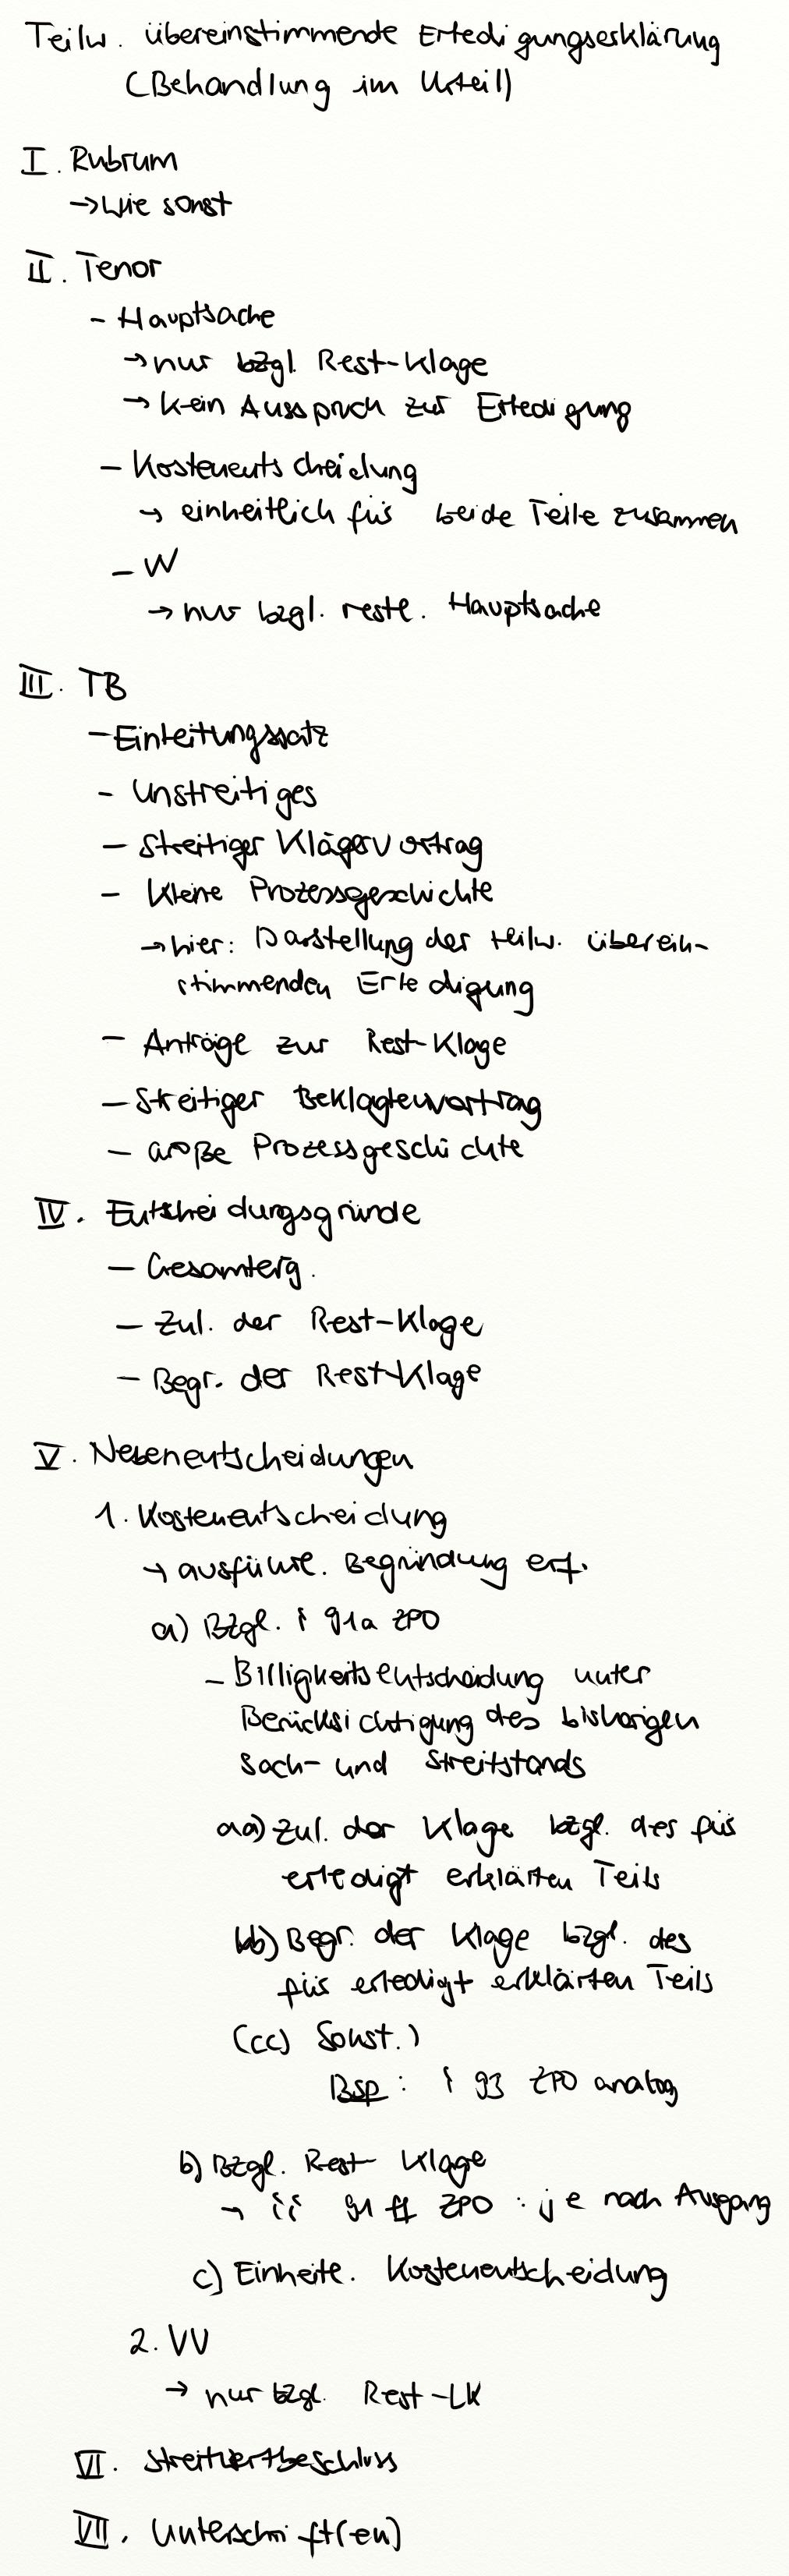 Teilw. übereinstimmende Erledigungserklärung
(Behandlung im Urteil)
I. Rubrum
→ wie sonst
II. Tenor
- Hauptsache
→ nur bzgl. Rest-Klage
→ kein Ausspruch zur Erledigung
- Kostenentscheidung
→ einheitlich für beide Teile zusammen
- VV
→ nur bzgl. restl. Hauptsache
III. TB
- Einleitungssatz
- Unstreitiges
- Streitiger Klägervortrag
- Kleine Prozessgeschichte
→ hier: Darstellung der teilw. überein-
stimmenden Erledigung
- Anträge zur Rest-Klage
- Streitiger Beklagtenvortrag
- Große Prozessgeschichte
IV. Entscheidungsgründe
- Gesamterg.
- Zul. der Rest-Klage
- Begr. der Rest-Klage
V. Nebenentscheidungen
1. Kostenentscheidung
→ ausführl. Begründung erf.
a) Bzgl. § 91a ZPO
- Billigkeitsentscheidung unter
Berücksichtigung des bisherigen
Sach- und Streitstands
aa) Zul. der Klage bzgl. des für
erledigt erklärten Teils
bb) Begr. der Klage bzgl. des
für erledigt erklärten Teils
(cc) Sonst.)
Bsp: § 93 ZPO analog
b) Bzgl. Rest-Klage
→ §§ 91 ff ZPO: je nach Ausgang
c) Einheitl. Kostenentscheidung
2. VV
→ nur bzgl. Rest-LK
VI. Streitwertbeschluss
VII. Unterschrift(en)